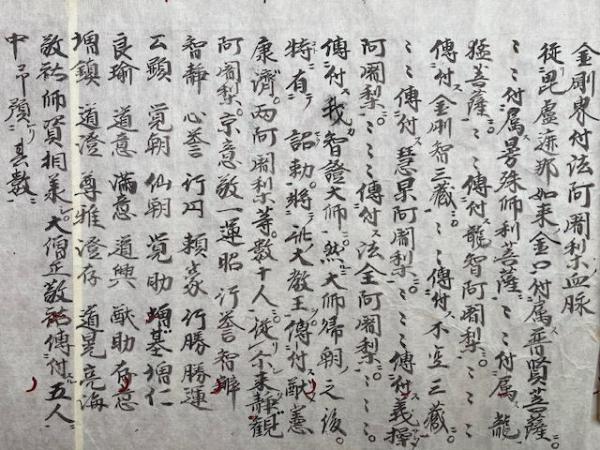 金剛界付法阿闍梨血脉
従毘盧遮那如来金口付属普賢菩薩
〻〻付属曼殊師利菩薩〻〻付属龍
猛菩薩〻〻傳付龍智阿闍梨〻〻
傳付金剛智三蔵〻〻傳付不空三蔵
〻〻傳付慧果阿闍梨〻〻〻傳付義操
阿闍梨〻〻〻傳付法全阿闍梨〻〻〻
傳付我智證大師然大師帰朝之後
特有詔勅將訛大教王傳付猷憲
康濟両阿闍梨等数十人従尓来静観
阿闍梨京意敬一運昭行誉智辨
智静心誉行円頼豪行勝勝運
公顕覚朝仙朝覚助増基増仁
良瑜道意満意道興猷助存忠
増鎮道澄尊雅澄存道晃亮海
敬祐師資相承大僧正敬祐傳付五人
中弟預其数